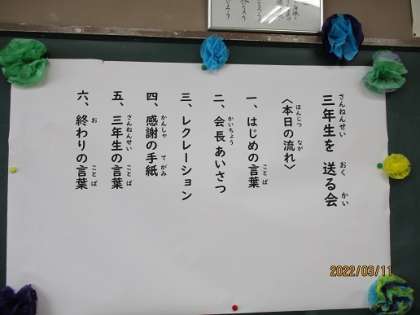 三年生を 送る会
〈本日の流れ〉
一、はじめの言葉
二、会長あいさつ
三、レクレーション
四、感謝の手紙
五、三年生の言葉
六、終わりの言葉
2022/03/11